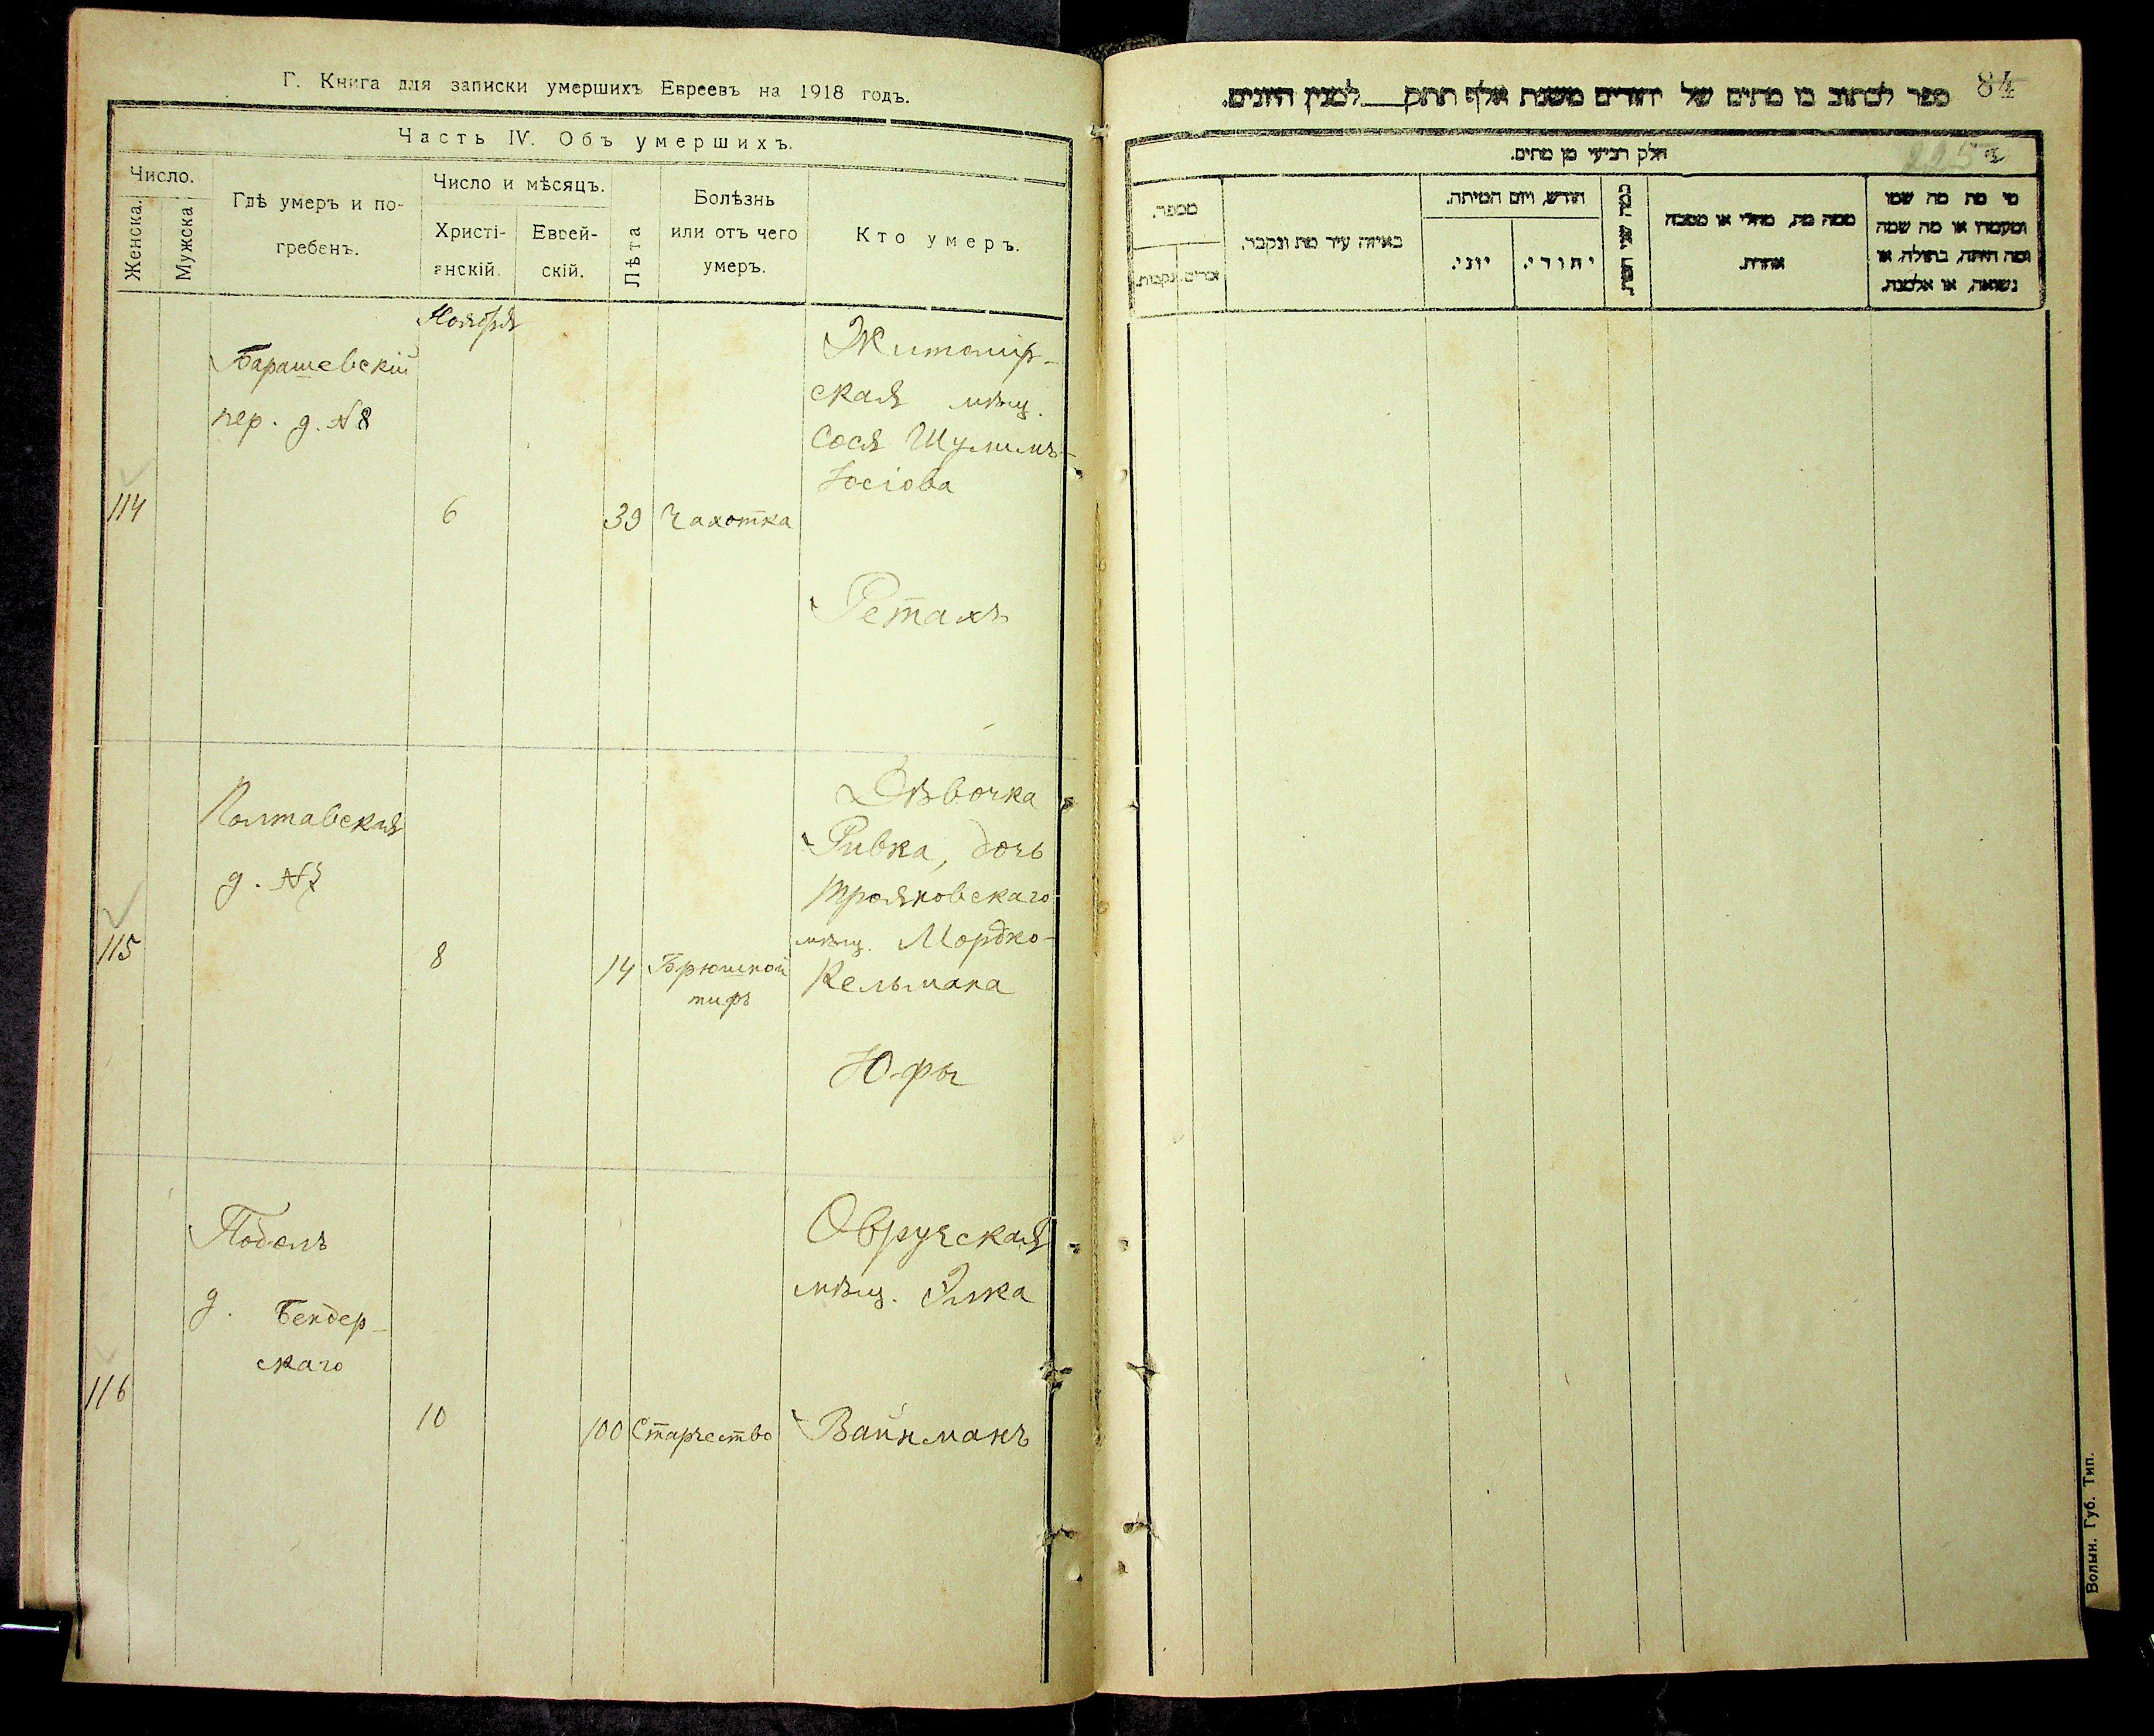 Г. Книга для записки умершихъ Евреевъ на 1918 годъ.
Часть IV. Объ умершихъ.
Число.
Женска.
Мужска
Гдѣ умеръ и по-
гребенъ.
Число и мѣсяцъ.
Христі-
анскій.
Еврей-
скій.
Лѣта
Болѣзнь
или отъ чего
умеръ.
Кто умеръ.
Ноября
114
Барашевскій
пер. д. №8
6
39
Чахотка
Житомір-
ская мѣщ.
Сося Шулимъ-
Іосіова
Ретахъ
115
Полтавская
д. №7
8
14
Брюшной
тифъ
Дѣвочка
Ривка, дочь
Трояновскаго
мѣщ. Мордко-
Кельмана
Юфы
116
Подолъ
д. Бендер-
скаго
10
100
Старчество
Овручская
мѣщ. Элка
Вайнманъ
84
ספר לכתוב בו מתים של יהודים משנת אלף תתק___למנין היונים.
225
חלק רביעי מן מתים.
מספר.
זכרים
נקבות.
באיזה עיר מת ונקבר.
חודש, ויום המיתה.
יוני.
יהודי.
ממה מת, מחלי או מסבה
אחרת.
מי מת מה שמו
ומעמדו או מה שמה
ומה היתה, בתולה, או
נשואה, או אלמנה.
Волын. Губ. Тип.